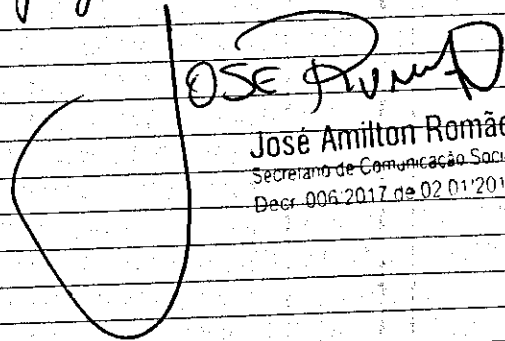 JOSE
José Amilton Romã
Secretario de Comunicação Soci
Decr. 006.2017 de 02.01'201